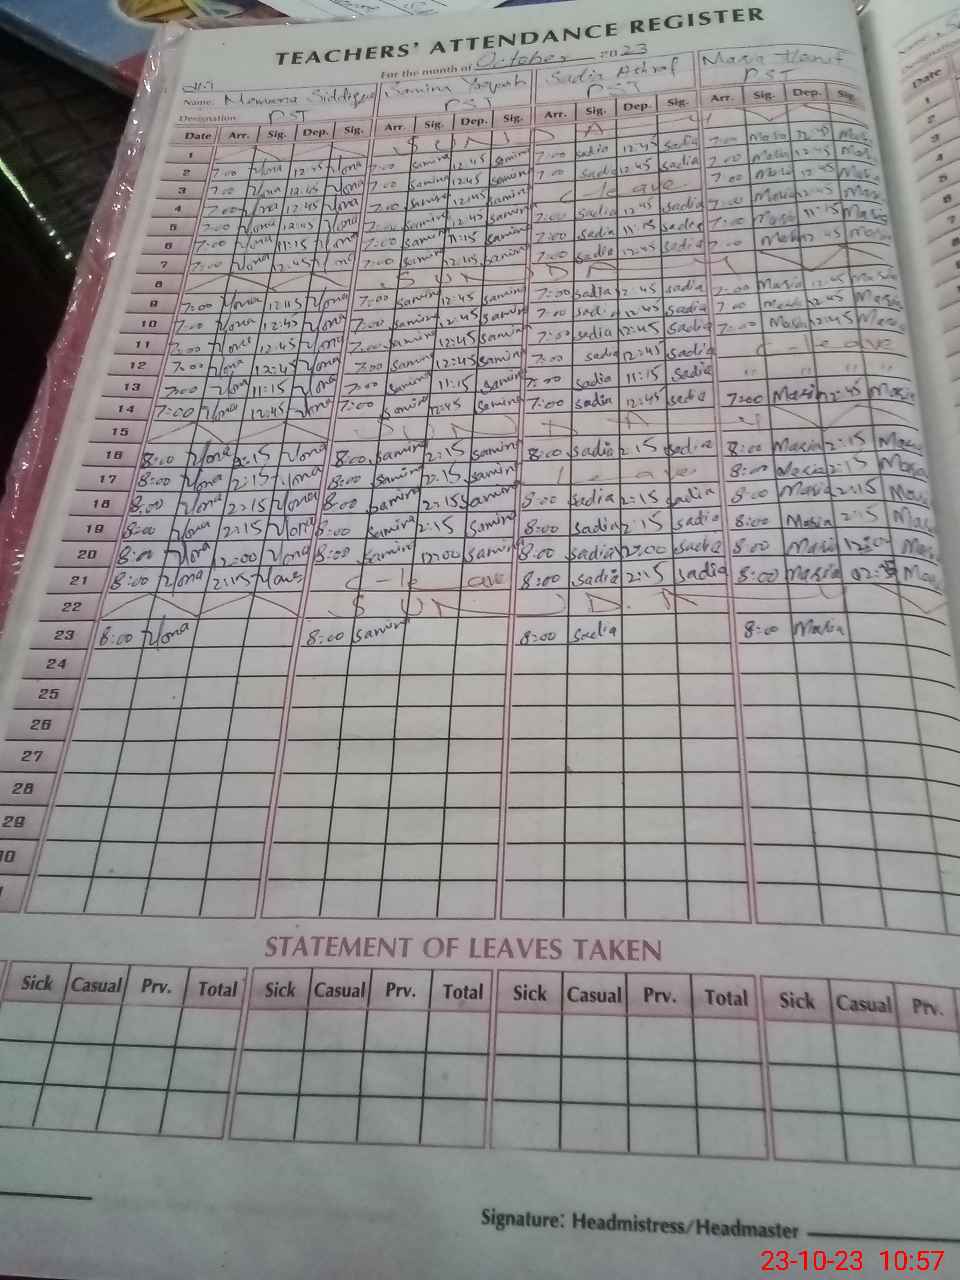 TEACHERS' ATTENDANCE REGISTER
For the month of October 2023
Name: Siddique Samina Sadia Ashraf Maria Hanif
Designation PST PST PST PST
Date Arr. Sig. Dep. Sig. Arr. Sig. Dep. Sig. Arr. Sig. Dep. Sig. Arr. Sig. Dep. Sig.
1 S U N D A Y
2 7:00 12:45 7:00 Samina 12:45 Samina 7:00 sadia 12:45 sadia 7:00 Maria 12:45 Maria
3 7:00 12:45 7:00 Samina 12:45 Samina 7:00 sadia 12:45 sadia 7:00 Maria 12:45 Maria
4 7:00 12:45 7:00 Samina 12:45 Samina C-leave 7:00 Maria 12:45 Maria
5 7:00 12:45 7:00 Samina 12:45 Samina 7:00 sadia 12:45 sadia 7:00 Maria 12:45 Maria
6 7:00 11:15 7:00 Samina 11:15 Samina 7:00 sadia 11:15 sadia 7:00 Maria 11:15 Maria
7 7:00 12:45 7:00 Samina 12:45 Samina 7:00 sadia 12:45 sadia 7:00 Maria 12:45 Maria
8 S U N D A Y
9 7:00 12:45 7:00 Samina 12:45 Samina 7:00 sadia 12:45 sadia 7:00 Maria 12:45 Maria
10 7:00 12:45 7:00 Samina 12:45 Samina 7:00 sadia 12:45 sadia 7:00 Maria 12:45 Maria
11 7:00 12:45 7:00 Samina 12:45 Samina 7:00 sadia 12:45 sadia 7:00 Maria 12:45 Maria
12 7:00 12:45 7:00 Samina 12:45 Samina 7:00 sadia 12:45 sadia C-leave
13 7:00 11:15 7:00 Samina 11:15 Samina 7:00 sadia 11:15 sadia " " " "
14 7:00 12:45 7:00 Samina 12:45 Samina 7:00 sadia 12:45 sadia 7:00 Maria 12:45 Maria
15 S U N D A Y
16 8:00 2:15 8:00 Samina 2:15 Samina 8:00 sadia 2:15 sadia 8:00 Maria 2:15 Maria
17 8:00 2:15 8:00 Samina 2:15 Samina leave 8:00 Maria 2:15 Maria
18 8:00 2:15 8:00 Samina 2:15 Samina 8:00 sadia 2:15 sadia 8:00 Maria 2:15 Maria
19 8:00 2:15 8:00 Samina 2:15 Samina 8:00 sadia 2:15 sadia 8:00 Maria 2:15 Maria
20 8:00 12:00 8:00 Samina 12:00 Samina 8:00 sadia 12:00 sadia 8:00 Maria 12:00 Maria
21 8:00 2:15 C-leave 8:00 sadia 2:15 sadia 8:00 Maria Maria
22 S U N D A Y
23 8:00 8:00 Samina 8:00 sadia 8:00 Maria
24
25
26
27
28
29
STATEMENT OF LEAVES TAKEN
Sick Casual Prv. Total Sick Casual Prv. Total Sick Casual Prv. Total Sick Casual Prv.
Signature: Headmistress/Headmaster
23-10-23 10:57